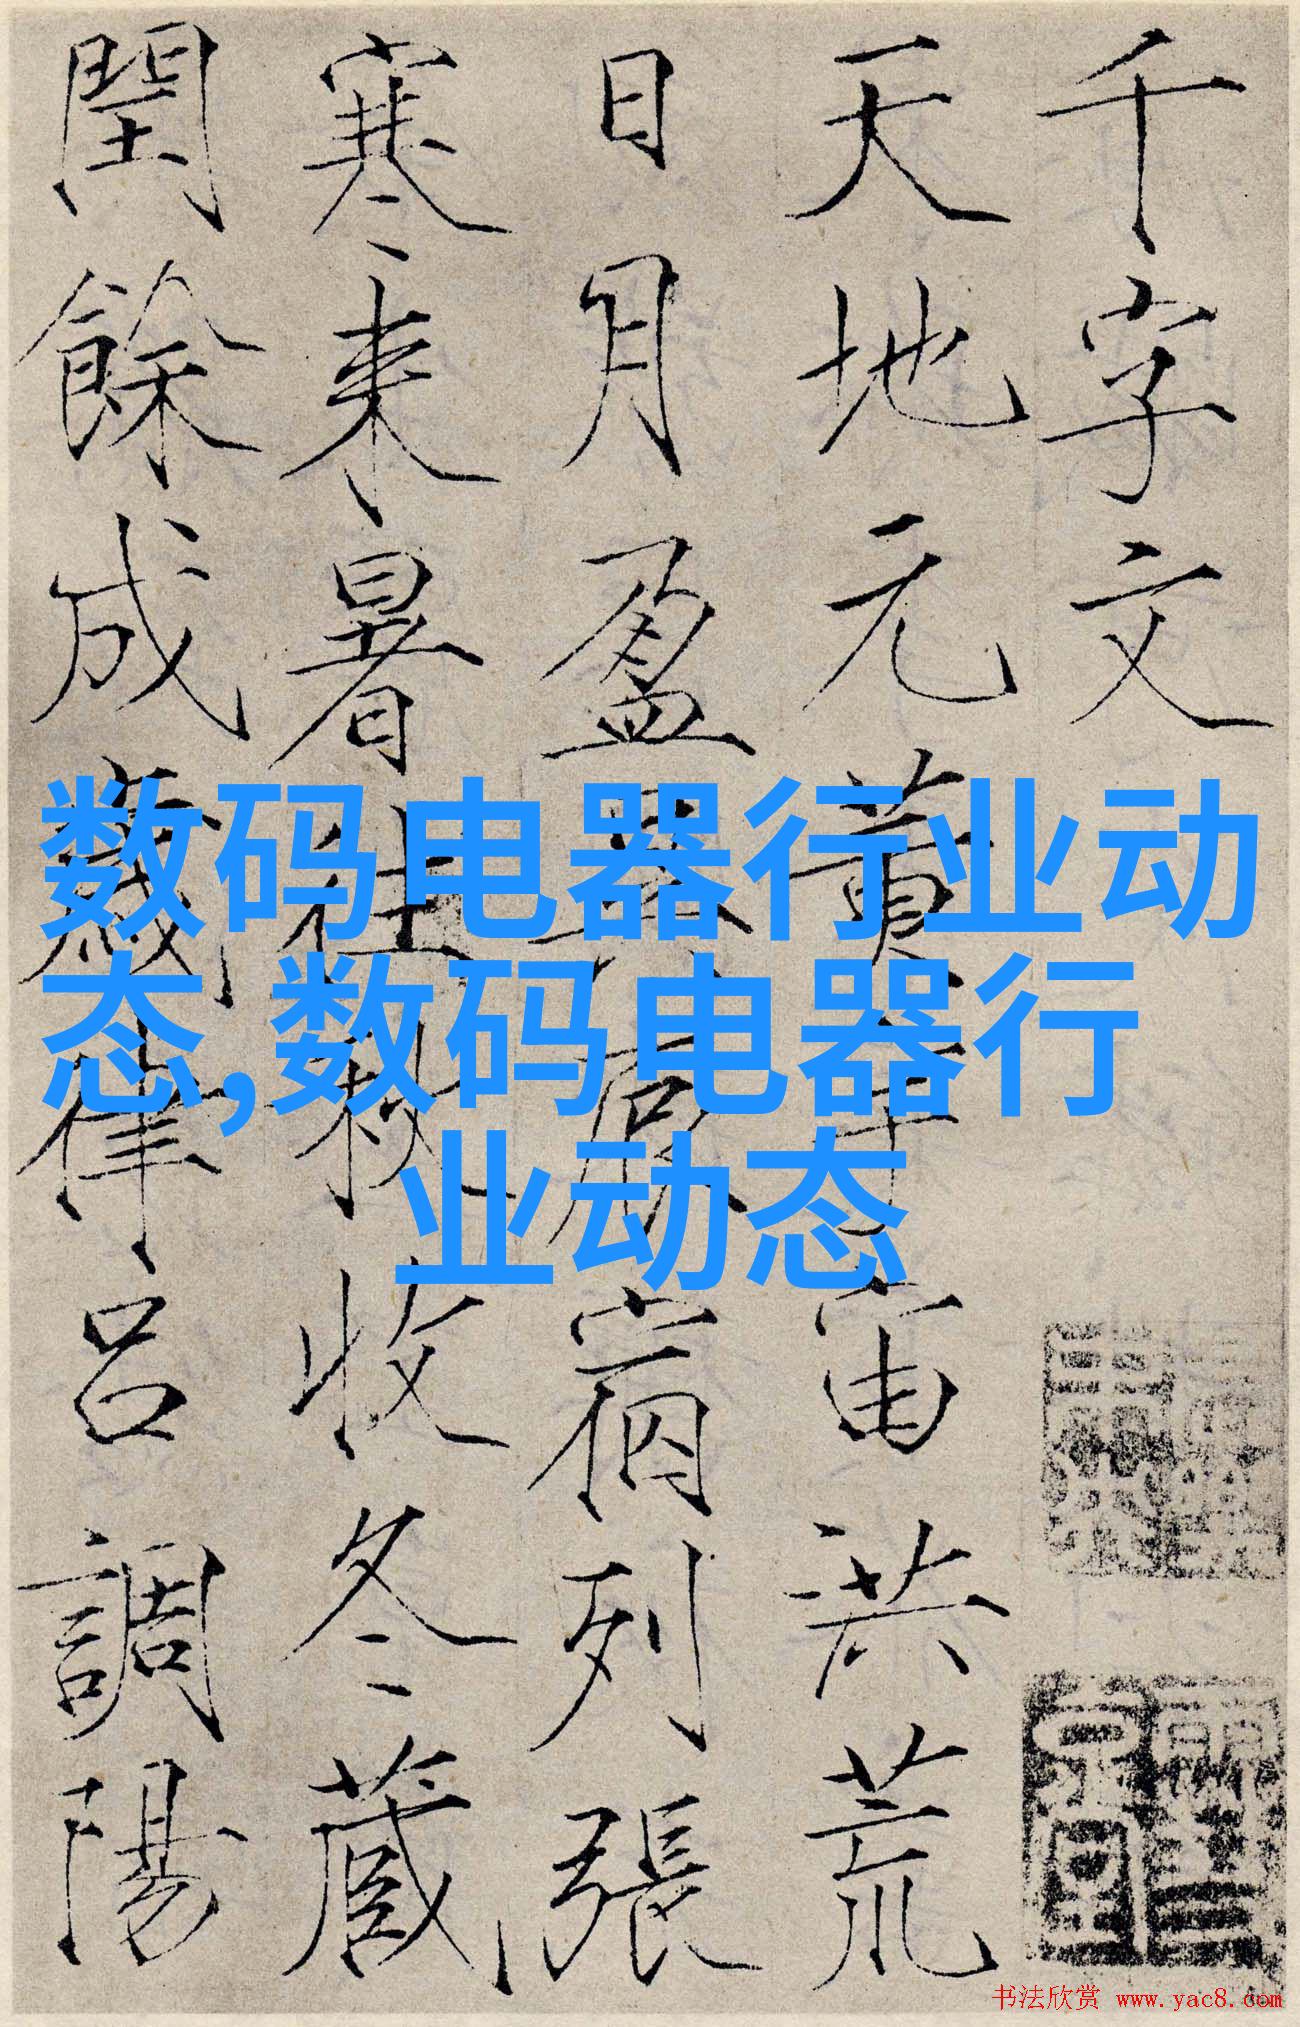 千字文
天地元黄宇宙洪荒
日月盈昃辰宿列張
寒来暑往秋收冬蔵
閏餘成歲律吕調陽
数码电器行业动
态,数码电器行
业动态
书法欣赏 www.yac8.com